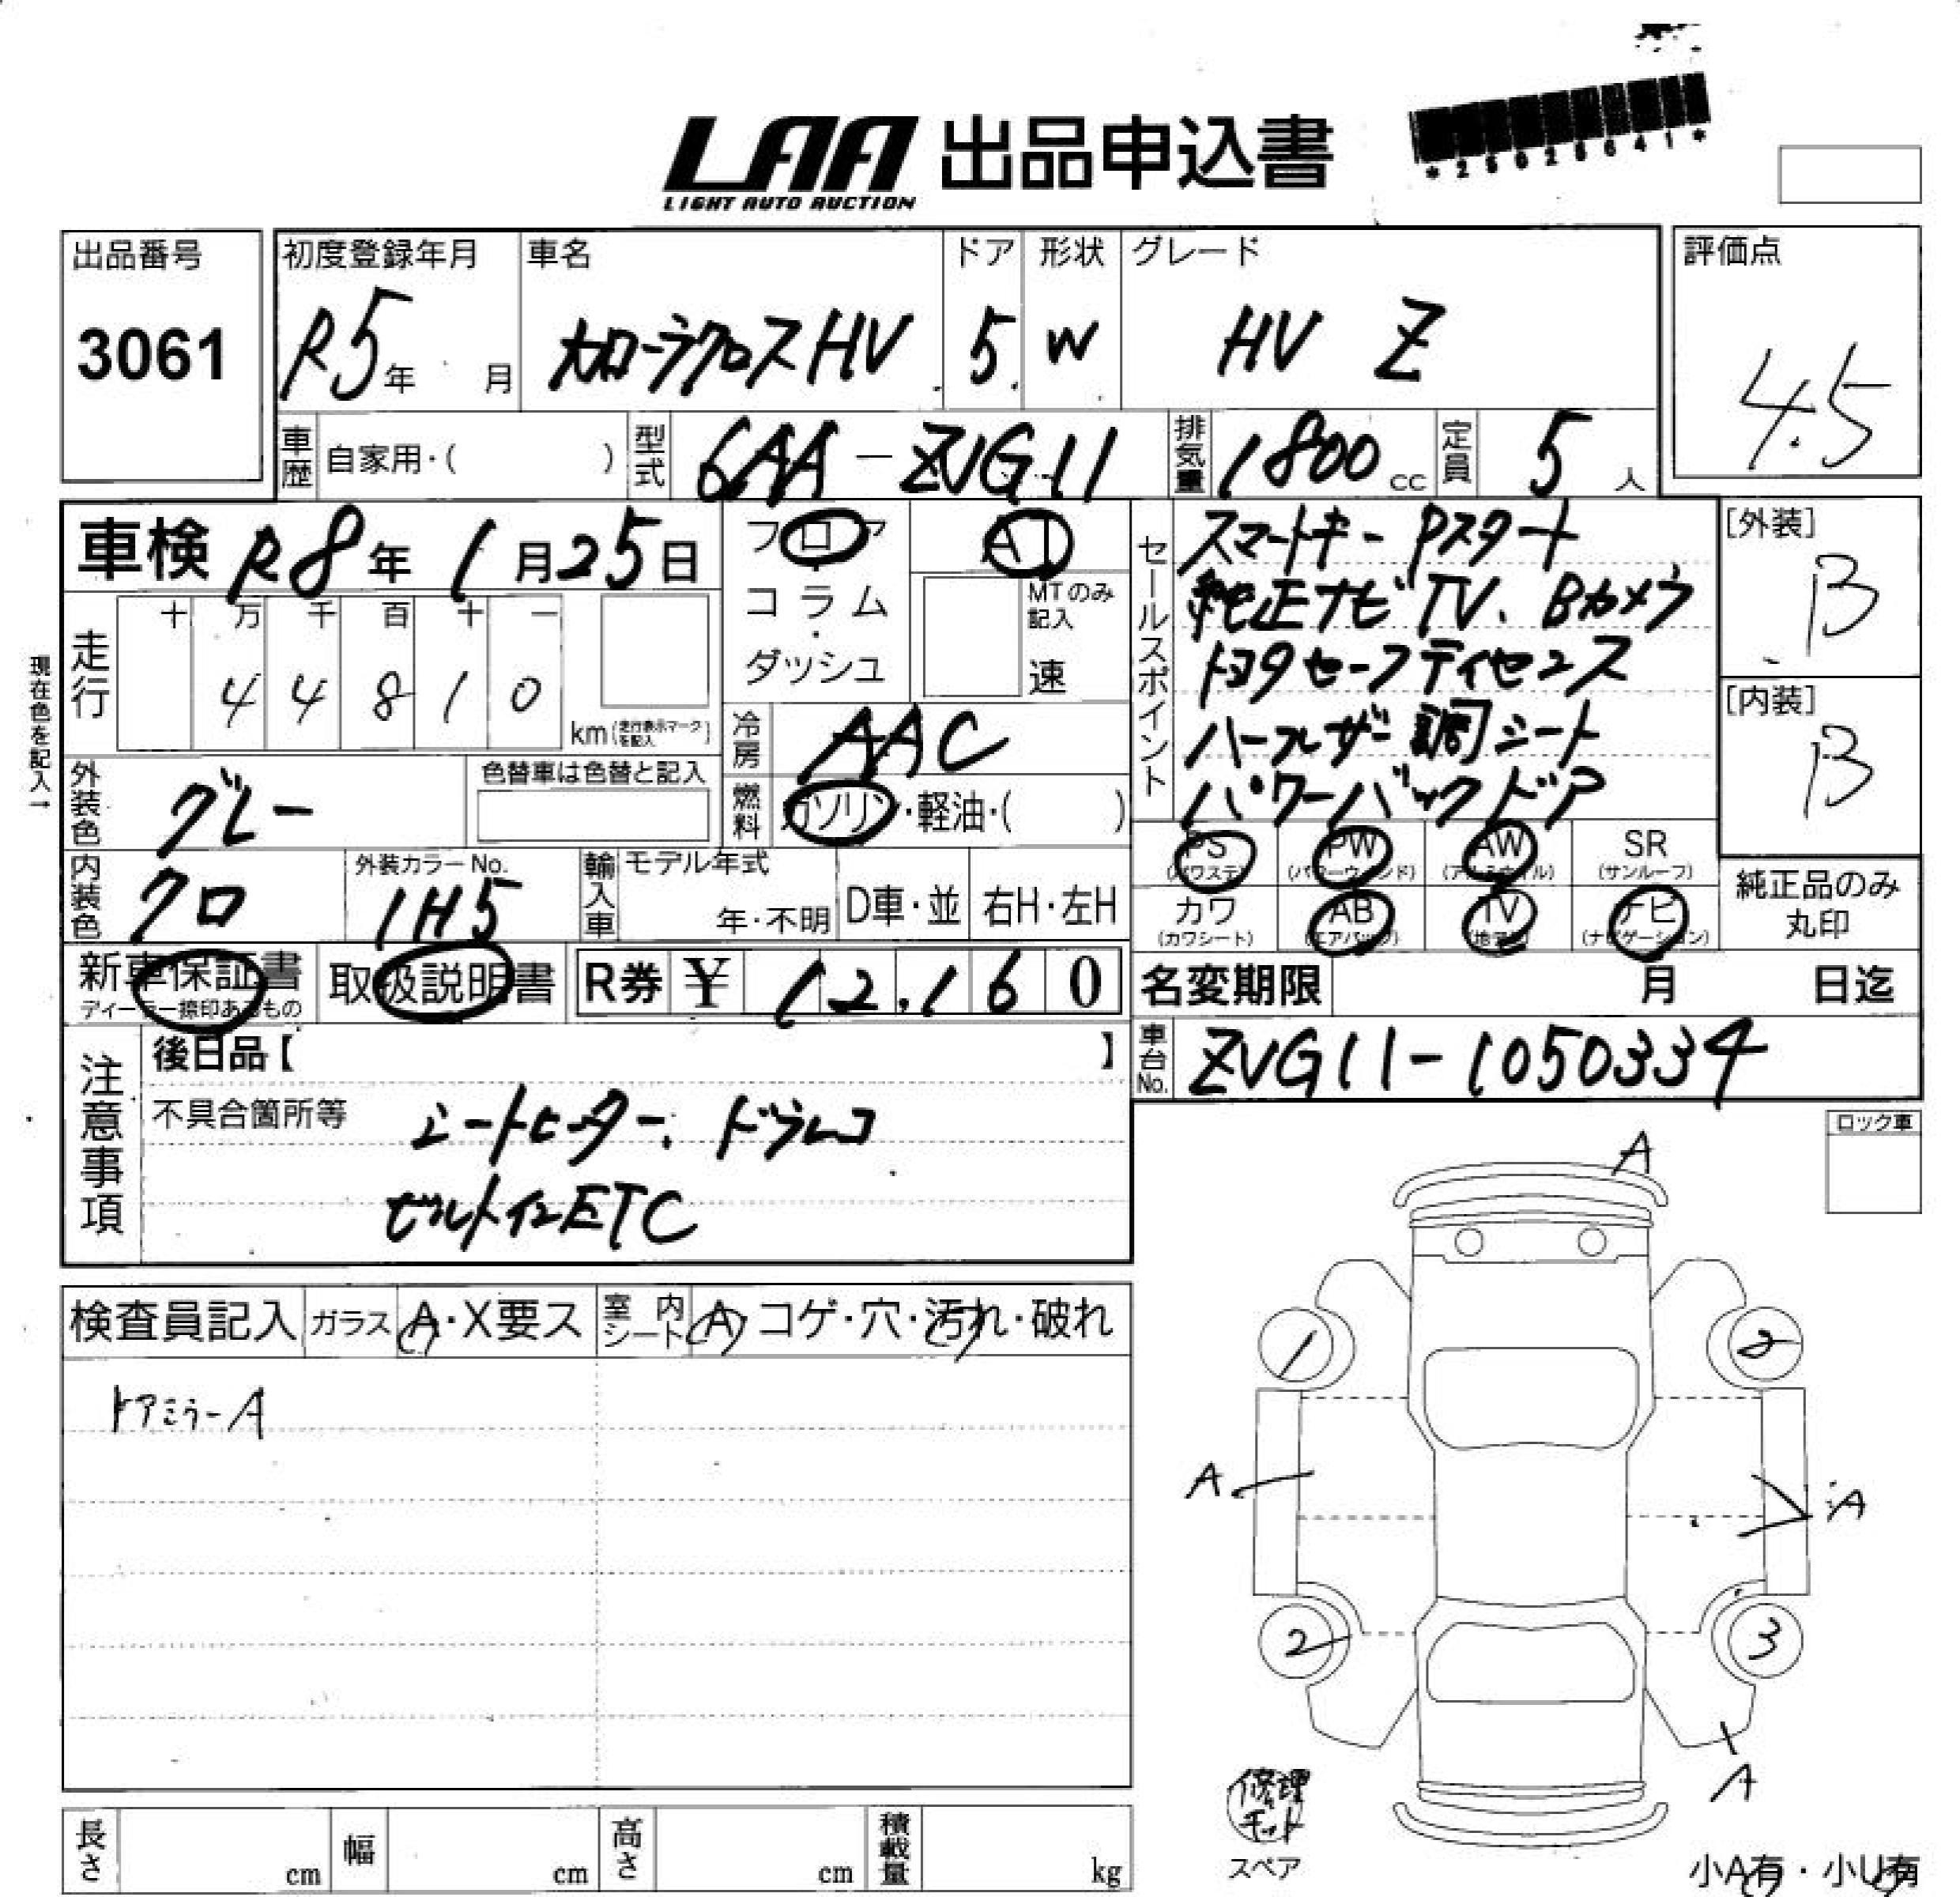 LAA 出品申込書
LIGHT AUTO AUCTION
出品番号
3061
初度登録年月
R5年 月
車名
カローラクロスHV
ドア
5
形状
W
グレード
HV Z
評価点
4.5
車歴 自家用・( )
型式 6AA-ZVG11
排気量 1800 cc
定員 5 人
車検 R8年 1月25日
フロア
コラム
・
ダッシュ
AT
MTのみ記入
速
走行
十 万 千 百 十 一
4 4 8 1 0
km(走行表示マークを記入)
現在色を記入→
冷房 AAC
燃料 ガソリン・軽油・( )
外装色 グレー
色替車は色替と記入
内装色 クロ
外装カラーNo.
1H5
輸入車
モデル年式
年・不明
D車・並
右H・左H
セールスポイント
スマートキー Pスタート
純正ナビTV、Bカメラ
トヨタセーフティセンス
ハーフレザー調シート
パワーバックドア
[外装]
B
[内装]
B
PS
(パワステ)
PW
(パワーウィンド)
AW
(アルミホイル)
SR
(サンルーフ)
カワ
(カワシート)
AB
(エアバッグ)
TV
(地デジ)
ナビ
(ナビゲーション)
純正品のみ
丸印
新車保証書
ディーラー捺印あるもの
取扱説明書
R券 ¥ 12,160
名変期限 月 日迄
車台No. ZVG11-1050334
注意事項
後日品【 】
不具合箇所等
シートヒーター、ドラレコ
ビルトインETC
検査員記入
ガラス A・X要ス
室内シート A・コゲ・穴・汚れ・破れ
ドアミラーA
ロック車
A
1
2
A
A
2
3
A
修理
キット
スペア
小A有・小U有
長さ cm
幅 cm
高さ cm
積載量 kg